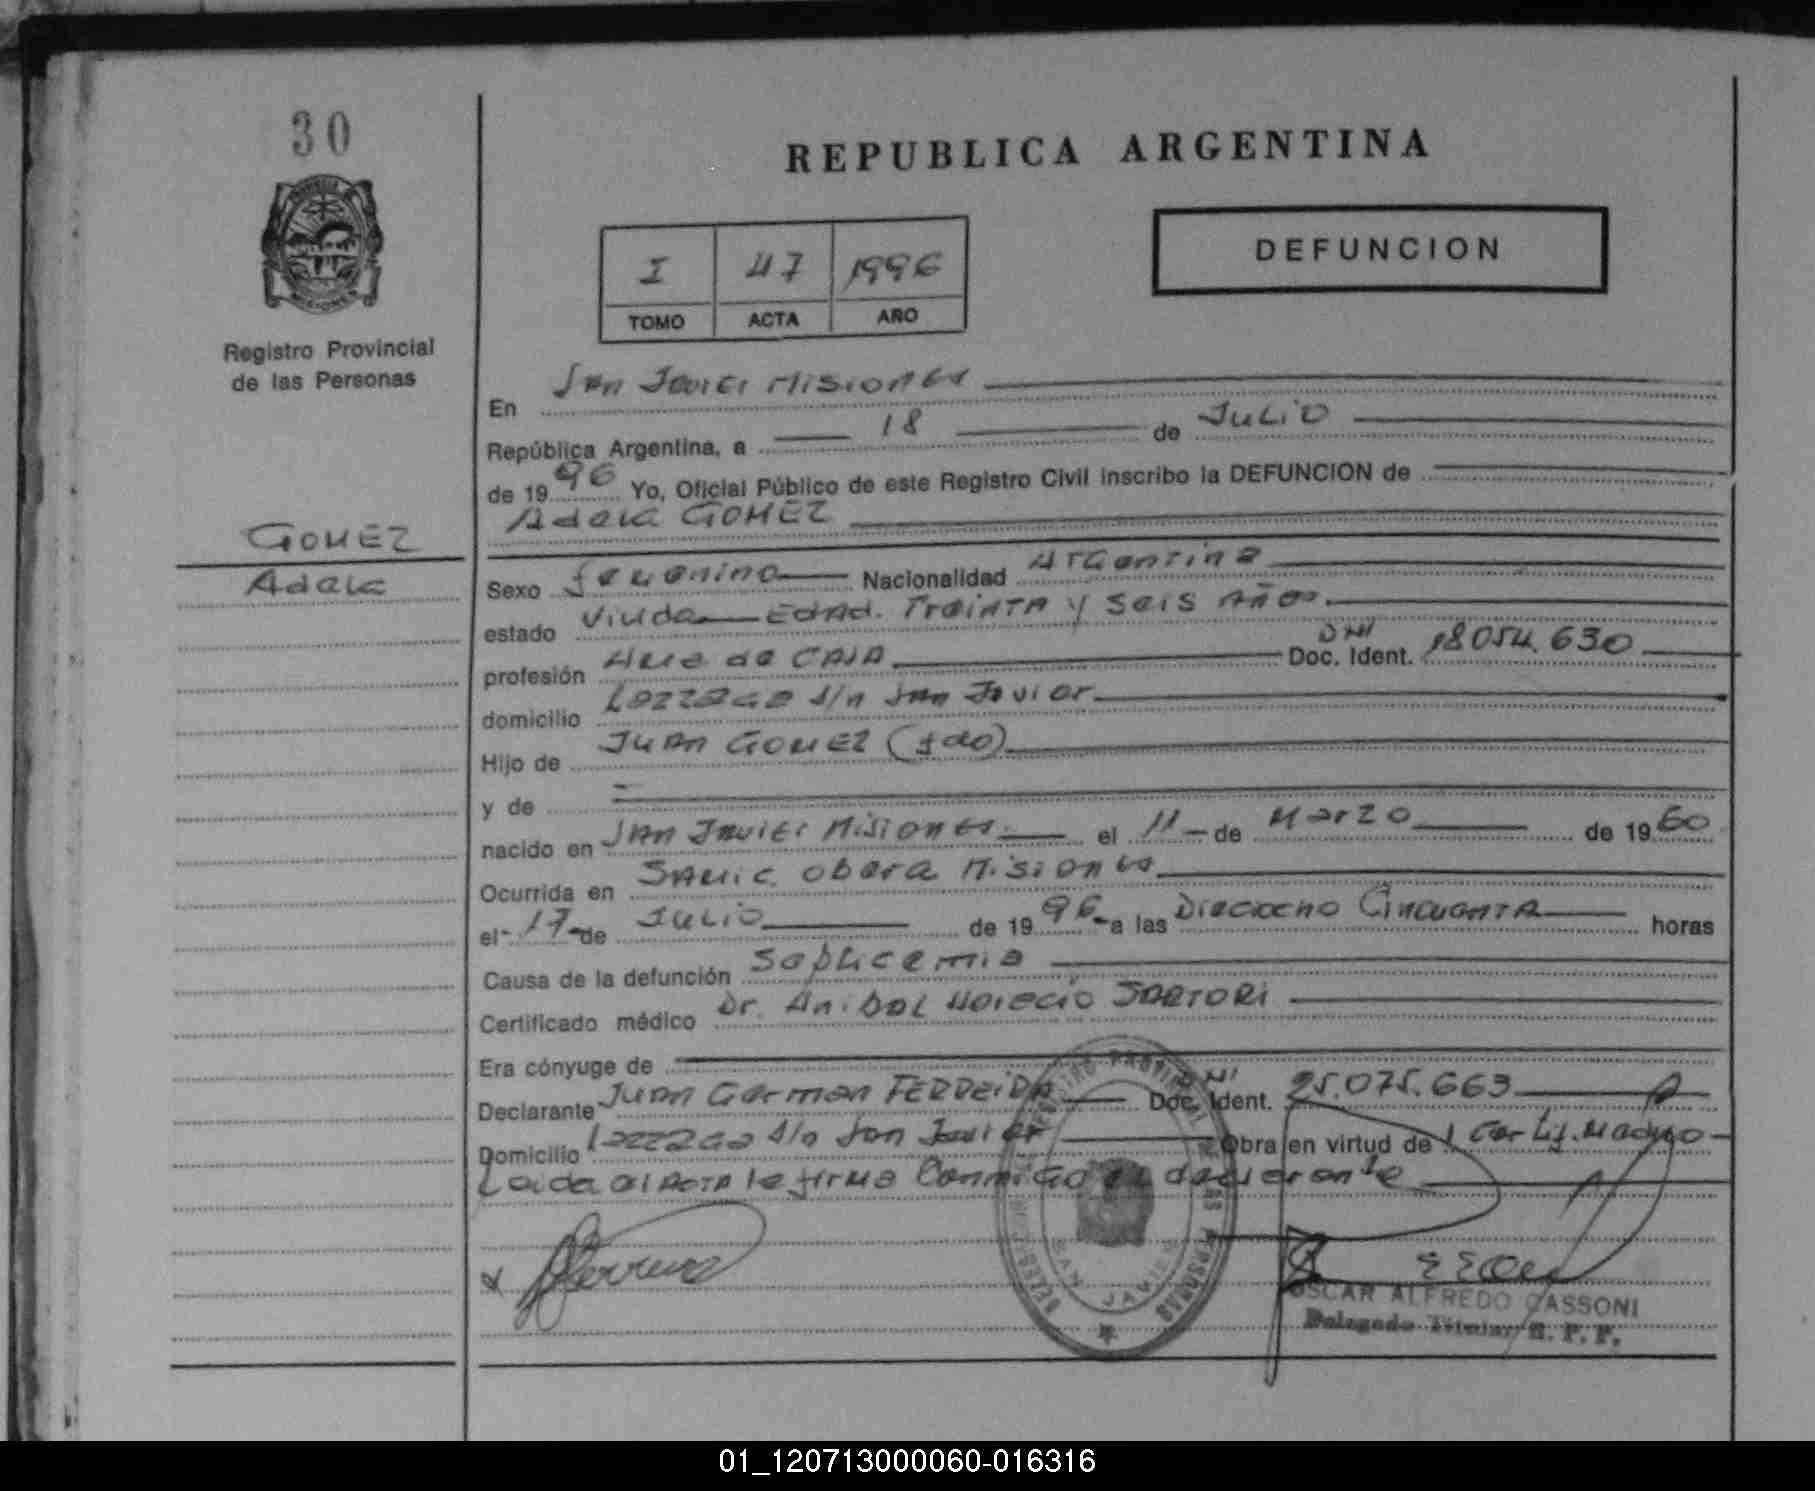 30
REPUBLICA ARGENTINA
DEFUNCION
I 47 1996
TOMO ACTA AÑO
Registro Provincial
de las Personas
En San Javier Misiones
República Argentina, a 18 de Julio
de 1996 Yo, Oficial Público de este Registro Civil inscribo la DEFUNCION de
Adela GOMEZ
GOMEZ
Adela
Sexo femenino Nacionalidad Argentina
estado Viuda EDAD. Treinta y seis Años
profesión Ama de CASA Doc. Ident. DNI 18054.630
domicilio s/n San Javier
Hijo de Juan GOMEZ (fdo)
y de
nacido en San Javier Misiones el 11 de Marzo de 1960
Ocurrida en SAMIC Obera Misiones
el 17 de Julio de 1996 a las Dieciocho Cincuenta horas
Causa de la defunción Septicemia
Certificado médico Dr. Anibal Horacio SARTORI
Era cónyuge de
Declarante Juan German FERREIRA Doc. Ident. DNI 25.075.663
Domicilio s/n San Javier Obra en virtud de Certif. Medico
Leida el Acta la firma Conmigo el declarante
SAN JAVIER
OSCAR ALFREDO CASSONI
Delegado Titular R. P. P.
01_120713000060-016316